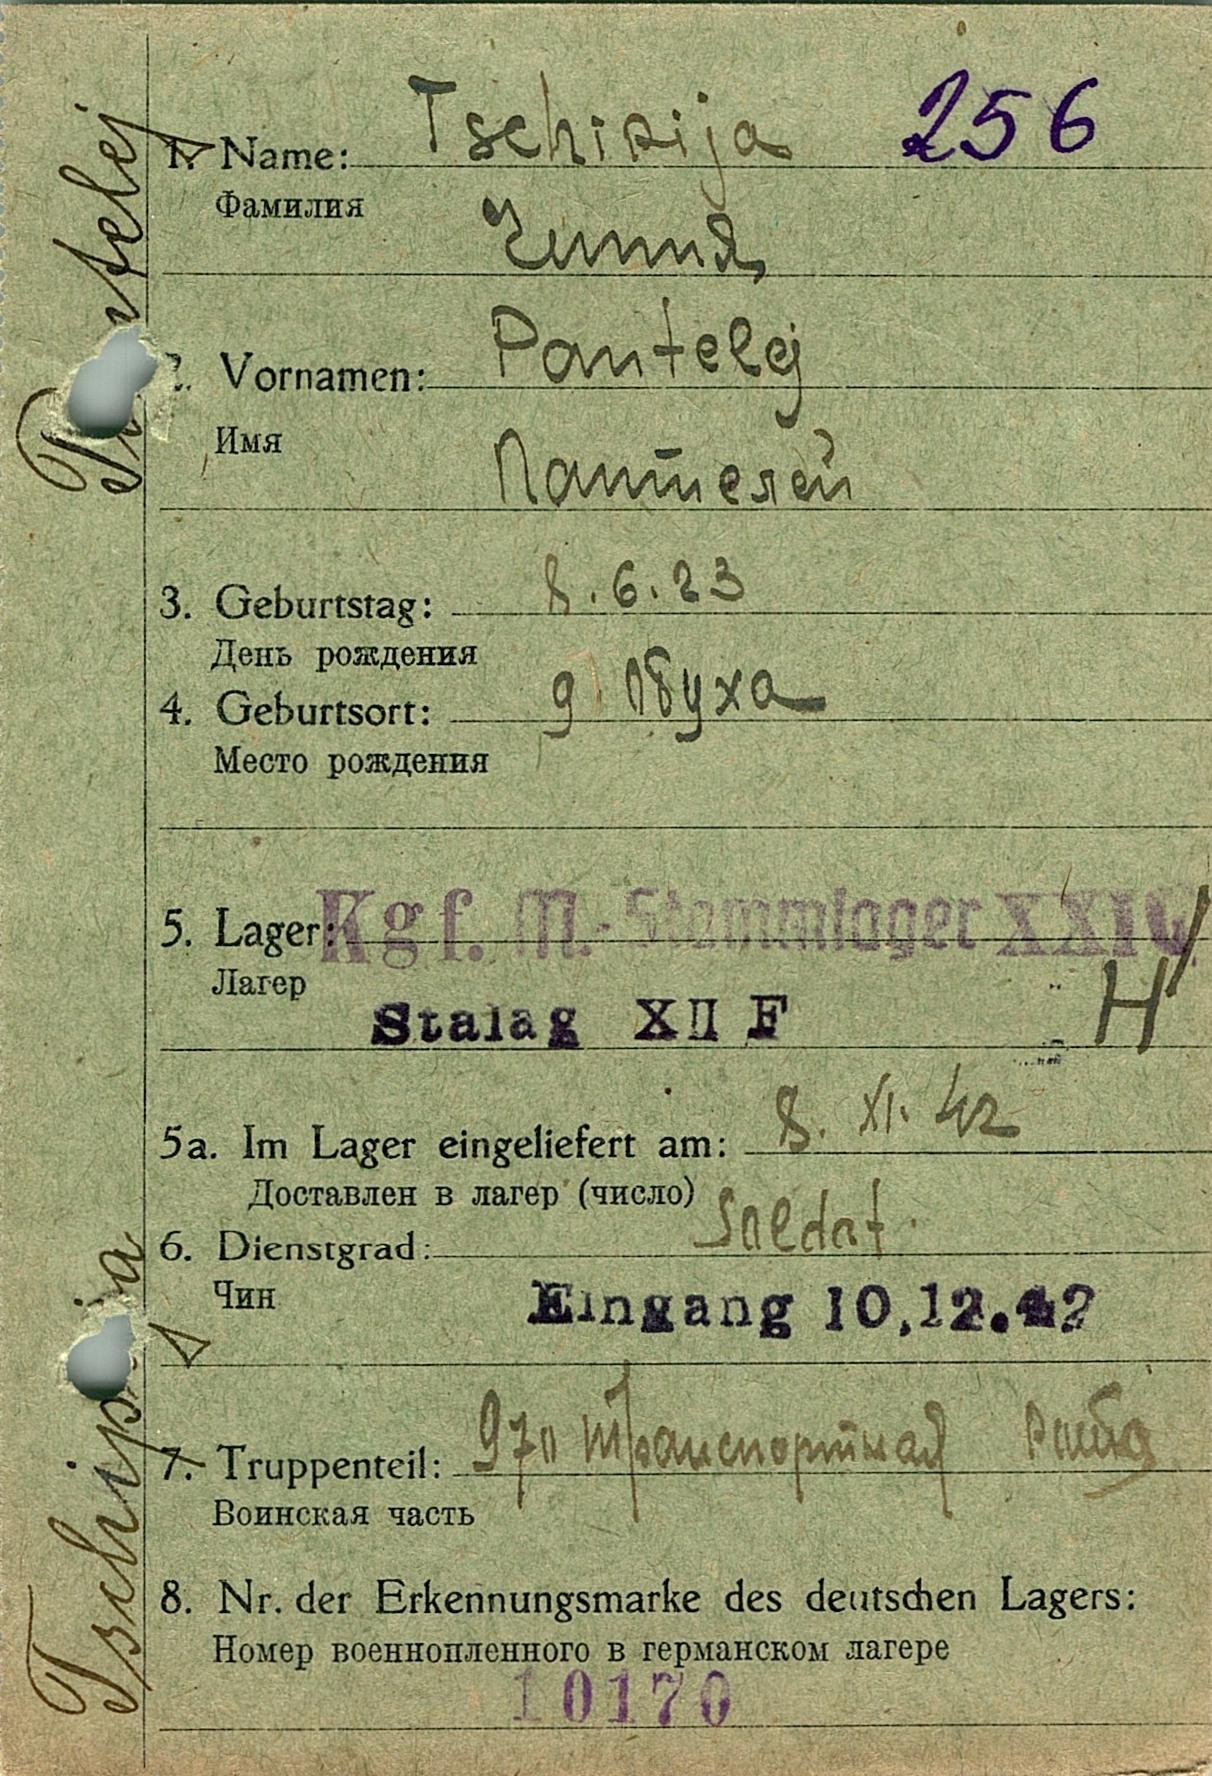 Tschipija 256
1. Name:
Фамилия
Чипия
Pantelej
2. Vornamen:
Имя
Пантелей
3. Geburtstag: 8.6.23
День рождения
4. Geburtsort: д. Обуха
Место рождения
5. Lager: Kgf. M.-Stammlager XXI
Лагер
Stalag XII F H
5a. Im Lager eingeliefert am: 8. XI. 42
Доставлен в лагер (число)
6. Dienstgrad: Soldat.
Чин
Eingang 10.12.42
7. Truppenteil: транспортная рота
Воинская часть
8. Nr. der Erkennungsmarke des deutschen Lagers:
Номер военнопленного в германском лагере
10170
Tschipija Pantelej